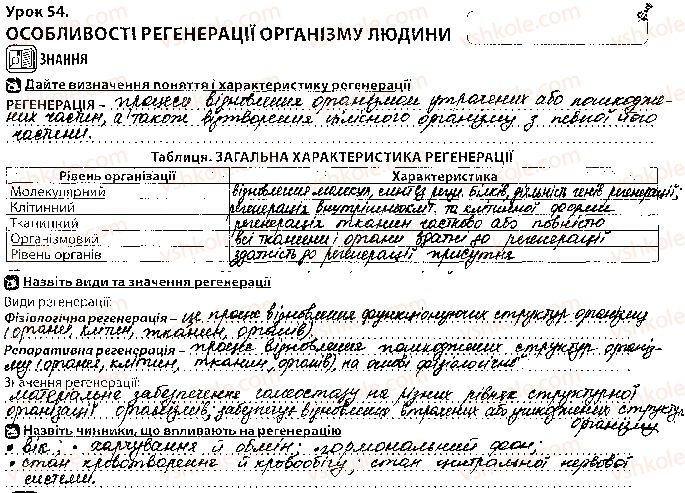 Урок 54.
ОСОБЛИВОСТІ РЕГЕНЕРАЦІЇ ОРГАНІЗМУ ЛЮДИНИ
ЗНАННЯ
Дайте визначення поняття і характеристику регенерації
РЕГЕНЕРАЦІЯ – процеси відновлення організмом утрачених або пошкодже-
них частин, а також відтворення цілісного організму з певної його
частини.
Таблиця. ЗАГАЛЬНА ХАРАКТЕРИСТИКА РЕГЕНЕРАЦІЇ
Рівень організації Характеристика
Молекулярний відновлення молекул, синтез рецепт. білків, діяльність генів регенерації;
Клітинний регенерація внутрішньокліт. та клітинної форми
Тканинний регенерація тканин частково або повністю
Організмовий всі тканини і органи здатні до регенерації
Рівень органів здатність до регенерації присутня
Назвіть види та значення регенерації
Види регенерації:
Фізіологічна регенерація – це процес відновлення функціонуючих структур організму
(органел, клітин, тканин, органів).
Репаративна регенерація – процес відновлення пошкоджених структур органі-
зму (органел, клітин, тканин, органів), на основі фізіологічне
Значення регенерації:
матеріальне забезпечення гомеостазу на різних рівнях структурної
організації організмів, забезпечує відновлення втрачених або ушкоджених структур
організму
Назвіть чинники, що впливають на регенерацію
• вік; • харчування й обмін; • гормональний фон;
• стан кровотворення й кровообігу; стан центральної нервової
системи.
vshkole.com